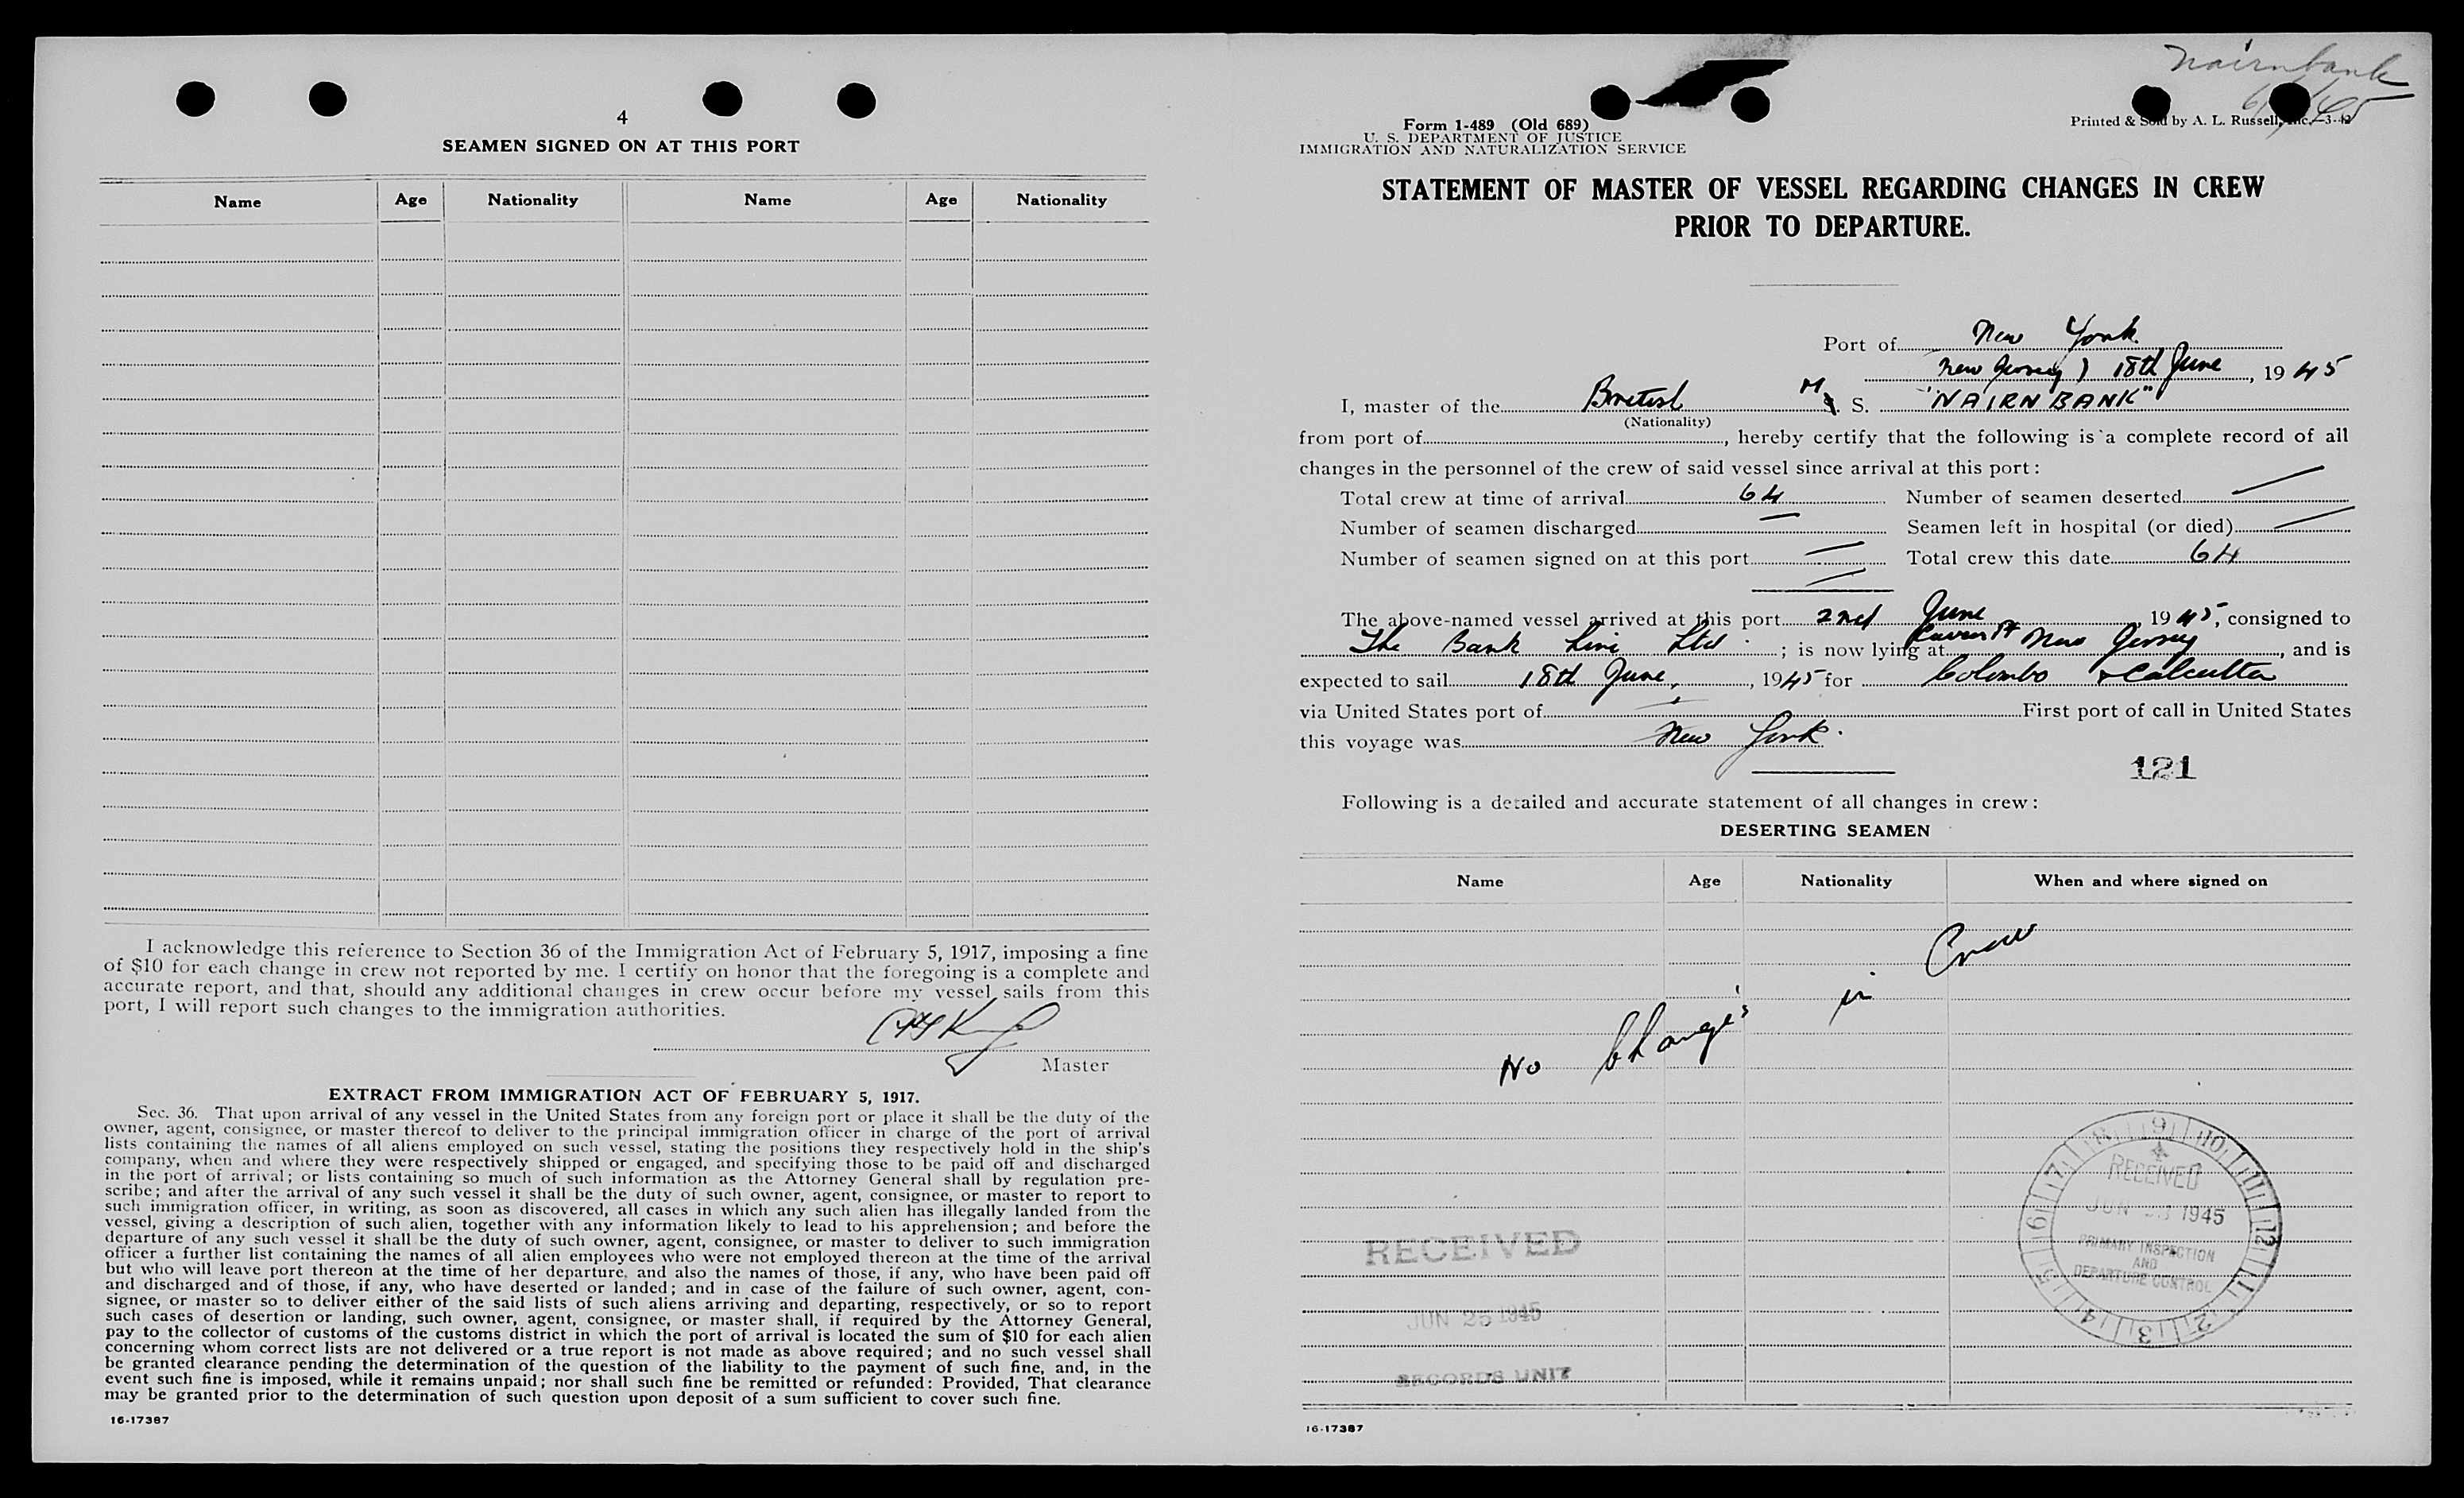 4
SEAMEN SIGNED ON AT THIS PORT
Name Age Nationality Name Age Nationality
I acknowledge this reference to Section 36 of the Immigration Act of February 5, 1917, imposing a fine
of $10 for each change in crew not reported by me. I certify on honor that the foregoing is a complete and
accurate report, and that, should any additional changes in crew occur before my vessel sails from this
port, I will report such changes to the immigration authorities.
Master
EXTRACT FROM IMMIGRATION ACT OF FEBRUARY 5, 1917.
Sec. 36. That upon arrival of any vessel in the United States from any foreign port or place it shall be the duty of the
owner, agent, consignee, or master thereof to deliver to the principal immigration officer in charge of the port of arrival
lists containing the names of all aliens employed on such vessel, stating the positions they respectively hold in the ship's
company, when and where they were respectively shipped or engaged, and specifying those to be paid off and discharged
in the port of arrival; or lists containing so much of such information as the Attorney General shall by regulation pre-
scribe; and after the arrival of any such vessel it shall be the duty of such owner, agent, consignee, or master to report to
such immigration officer, in writing, as soon as discovered, all cases in which any such alien has illegally landed from the
vessel, giving a description of such alien, together with any information likely to lead to his apprehension; and before the
departure of any such vessel it shall be the duty of such owner, agent, consignee, or master to deliver to such immigration
officer a further list containing the names of all alien employees who were not employed thereon at the time of the arrival
but who will leave port thereon at the time of her departure, and also the names of those, if any, who have been paid off
and discharged and of those, if any, who have deserted or landed; and in case of the failure of such owner, agent, con-
signee, or master so to deliver either of the said lists of such aliens arriving and departing, respectively, or so to report
such cases of desertion or landing, such owner, agent, consignee, or master shall, if required by the Attorney General,
pay to the collector of customs of the customs district in which the port of arrival is located the sum of $10 for each alien
concerning whom correct lists are not delivered or a true report is not made as above required; and no such vessel shall
be granted clearance pending the determination of the question of the liability to the payment of such fine, and, in the
event such fine is imposed, while it remains unpaid; nor shall such fine be remitted or refunded: Provided, That clearance
may be granted prior to the determination of such question upon deposit of a sum sufficient to cover such fine.
16-17387
Nairnbank
Form 1-489 (Old 689)
U. S. DEPARTMENT OF JUSTICE
IMMIGRATION AND NATURALIZATION SERVICE
Printed & Sold by A. L. Russell, Inc.—3-42
STATEMENT OF MASTER OF VESSEL REGARDING CHANGES IN CREW
PRIOR TO DEPARTURE.
Port of New York
New Jersey) 18th June, 1945
I, master of the British M S. "NAIRNBANK"
(Nationality)
from port of, hereby certify that the following is a complete record of all
changes in the personnel of the crew of said vessel since arrival at this port:
Total crew at time of arrival 64 Number of seamen deserted —
Number of seamen discharged — Seamen left in hospital (or died) —
Number of seamen signed on at this port — Total crew this date 64
The above-named vessel arrived at this port 2nd June 1945, consigned to
The Bank Line Ltd; is now lying at New Jersey, and is
expected to sail 18th June, 1945 for Colombo & Calcutta
via United States port of — First port of call in United States
this voyage was New York.
121
Following is a detailed and accurate statement of all changes in crew:
DESERTING SEAMEN
Name Age Nationality When and where signed on
No Changes in Crew
RECEIVED
JUN 25 1945
RECORDS UNIT
9 10 11 12 1 2 3 4 5 6 7 8
RECEIVED
JUN 1945
PRIMARY INSPECTION
AND
DEPARTURE CONTROL
16-17387